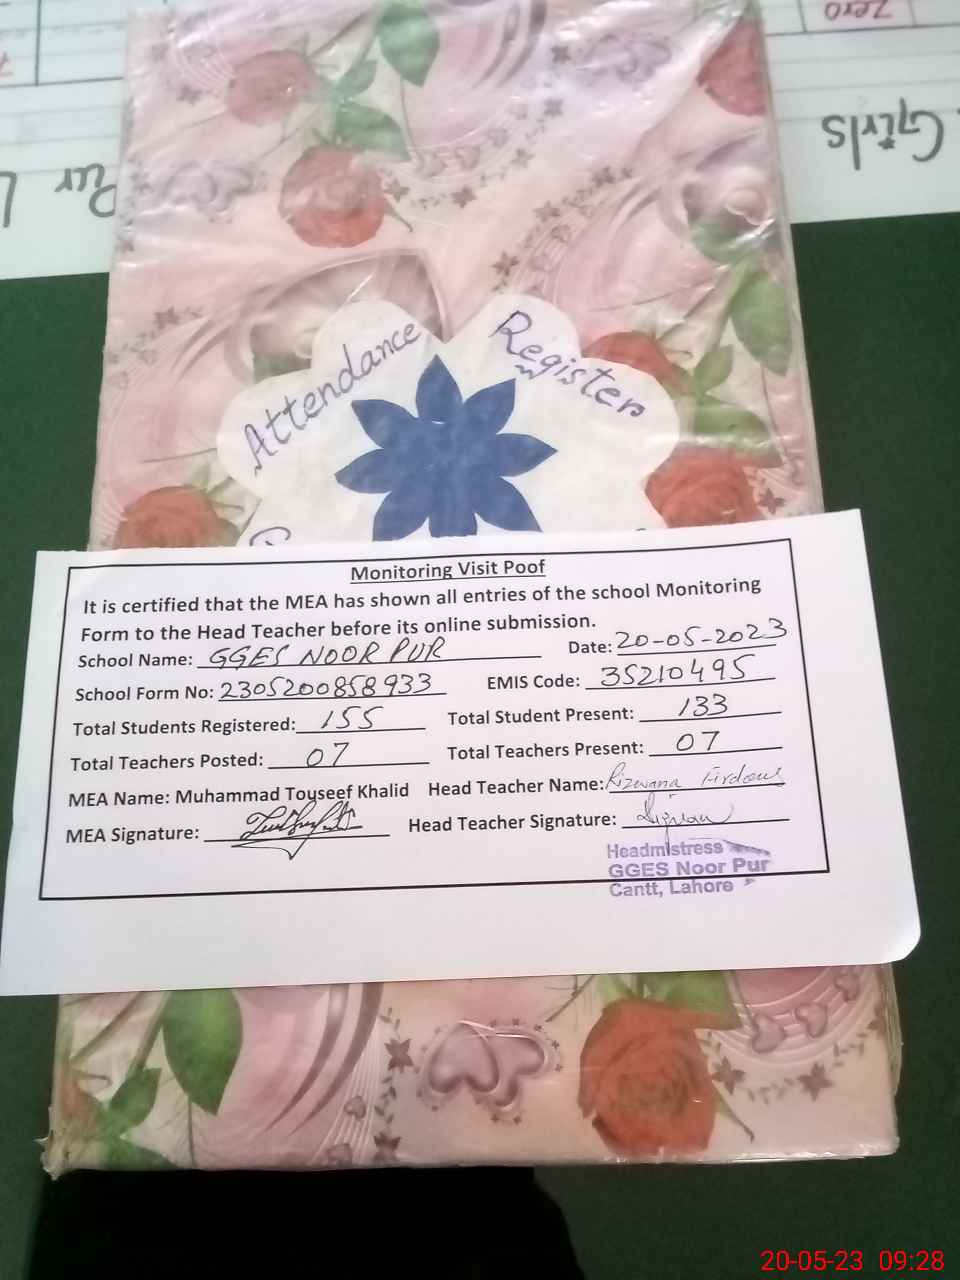 Zero
Girls
Pur L
Attendance Register
Monitoring Visit Poof
It is certified that the MEA has shown all entries of the school Monitoring
Form to the Head Teacher before its online submission.
School Name: GGES NOOR PUR Date: 20-05-2023
School Form No: 2305200858933 EMIS Code: 35210495
Total Students Registered: 155 Total Student Present: 133
Total Teachers Posted: 07 Total Teachers Present: 07
MEA Name: Muhammad Touseef Khalid Head Teacher Name: Rizwana Firdous
MEA Signature: Head Teacher Signature:
Headmistress
GGES Noor Pur
Cantt, Lahore
20-05-23 09:28